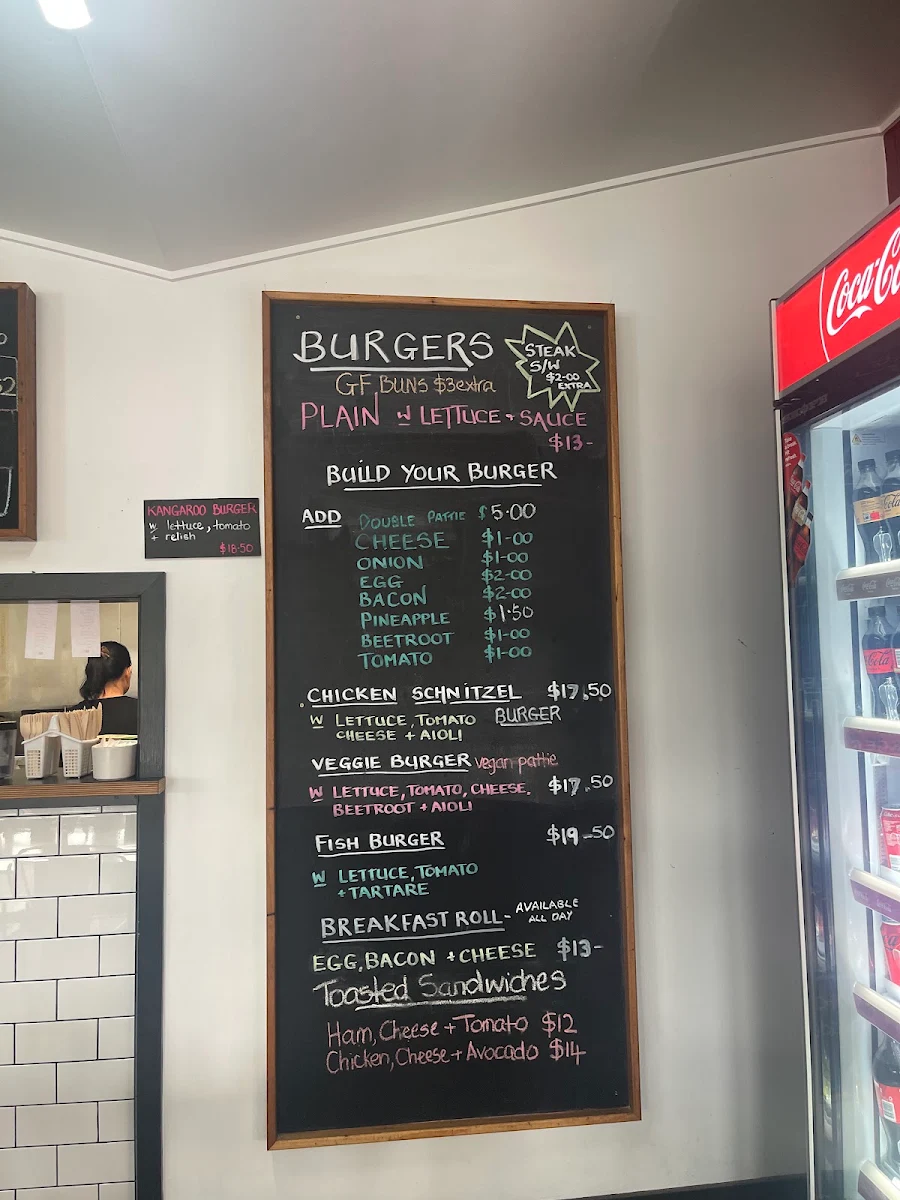 BURGERS
STEAK
S/W
$2-00
EXTRA
GF BUNS $3extra
PLAIN W LETTUCE + SAUCE
$13-
BUILD YOUR BURGER
ADD DOUBLE PATTIE $5.00
CHEESE $1-00
ONION $1-00
EGG $2-00
BACON $2-00
PINEAPPLE $1.50
BEETROOT $1-00
TOMATO $1-00
CHICKEN SCHNITZEL $17.50
W LETTUCE, TOMATO BURGER
CHEESE + AIOLI
VEGGIE BURGER vegan pattie
W LETTUCE, TOMATO, CHEESE. $17.50
BEETROOT + AIOLI
FISH BURGER $19-50
W LETTUCE, TOMATO
+ TARTARE
BREAKFAST ROLL - AVAILABLE
ALL DAY
EGG, BACON + CHEESE $13-
Toasted Sandwiches
Ham, Cheese + Tomato $12
Chicken, Cheese + Avocado $14
KANGAROO BURGER
W lettuce, tomato
+ relish
$18-50